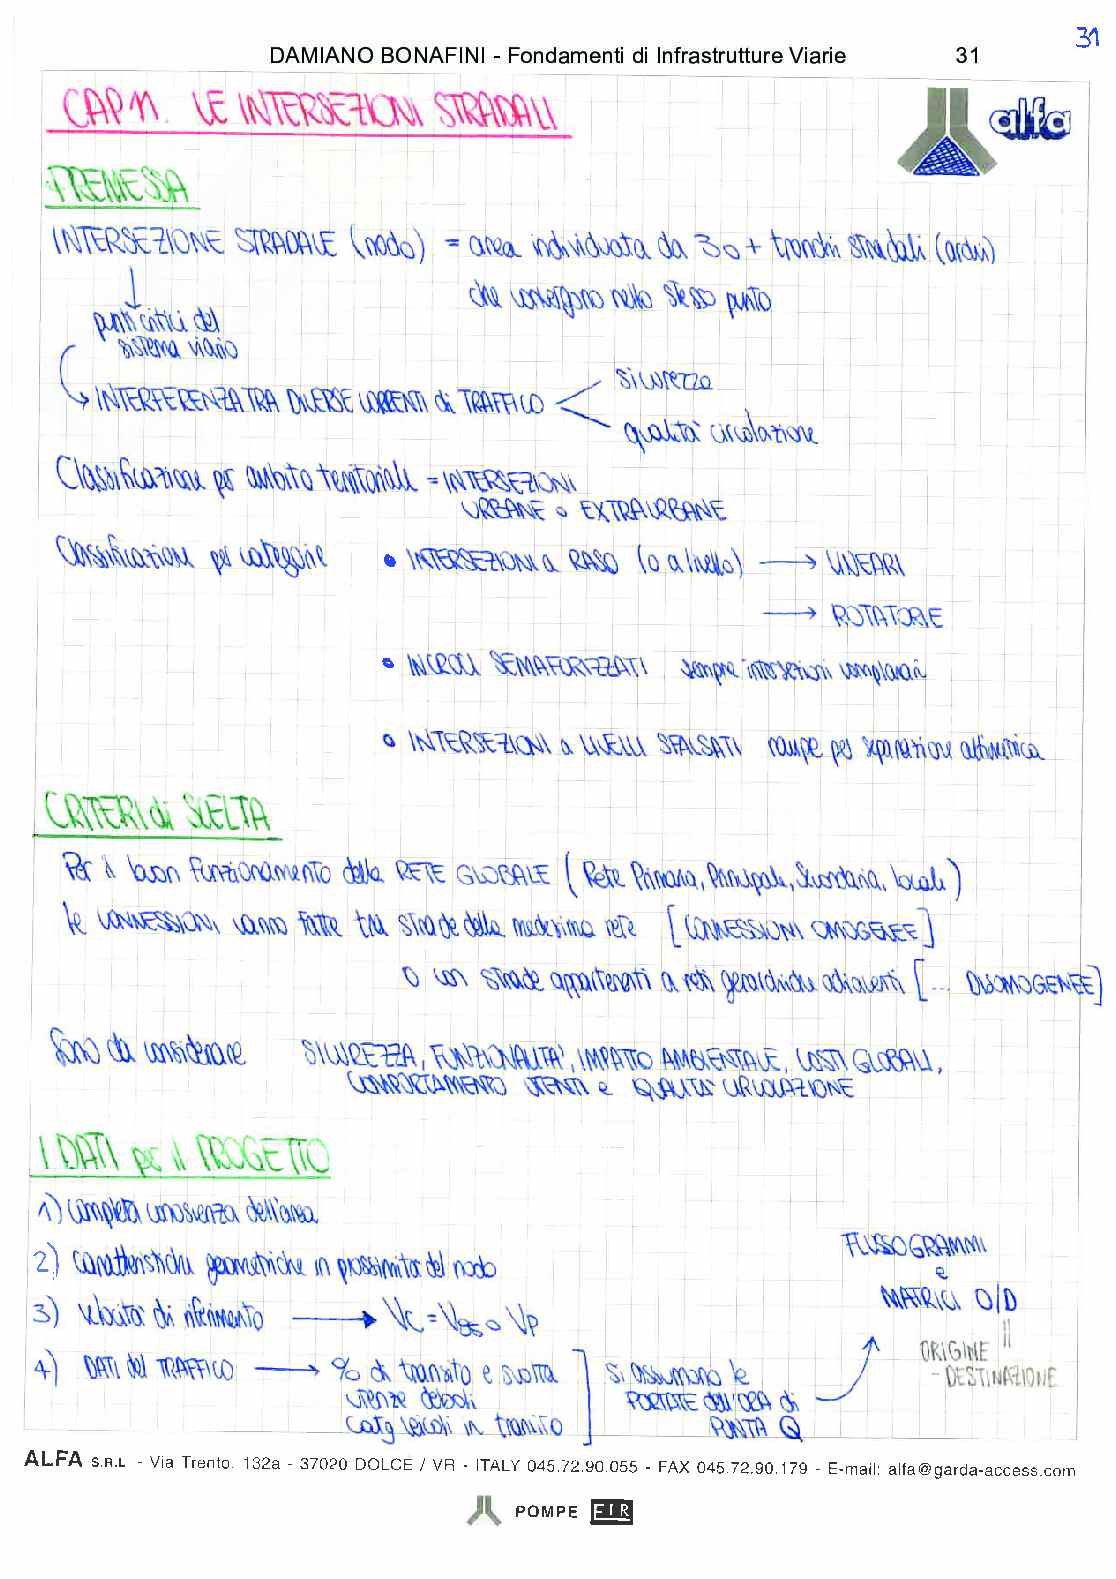 31
DAMIANO BONAFINI - Fondamenti di Infrastrutture Viarie 31
CAP 11. LE INTERSEZIONI STRADALI
alfa
PREMESSA
INTERSEZIONE STRADALE (nodo) = area individuata da 3 o + tronchi stradali (archi)
che convergono nello stesso punto
punti critici del
sistema viario
INTERFERENZA TRA DIVERSE CORRENTI di TRAFFICO
sicurezza
qualità circolazione
Classificazione per ambito territoriale = INTERSEZIONI
URBANE o EXTRAURBANE
Classificazione per categorie • INTERSEZIONI a RASO (o a livello) → LINEARI
→ ROTATORIE
• INCROCI SEMAFORIZZATI sempre intersezioni complanari
• INTERSEZIONI a LIVELLI SFALSATI rampe per separazione altimetrica
CRITERI di SCELTA
Per il buon funzionamento della RETE GLOBALE (Rete Primaria, Principale, Secondaria, locale)
le CONNESSIONI vanno fatte tra strade della medesima rete [CONNESSIONI OMOGENEE]
o con strade appartenenti a reti gerarchiche adiacenti [... DISOMOGENEE]
Sono da considerare SICUREZZA, FUNZIONALITA', IMPATTO AMBIENTALE, COSTI GLOBALI,
COMPORTAMENTO UTENTI e QUALITA' CIRCOLAZIONE
I DATI per il PROGETTO
1) Completa conoscenza dell'area
2) Caratteristiche geometriche in prossimità del nodo
3) Velocità di riferimento → Vc = V85 o Vp
4) DATI del TRAFFICO → % di transito e svolta
utenze deboli
Catg veicoli in transito
si assumono le
PORTATE dell'ORA di
PUNTA Q
FLUSSOGRAMMI
e
MATRICI O/D
=
ORIGINE
- DESTINAZIONE
ALFA S.R.L - Via Trento, 132a - 37020 DOLCE / VR - ITALY 045.72.90.055 - FAX 045.72.90.179 - E-mail: alfa@garda-access.com
POMPE FIR